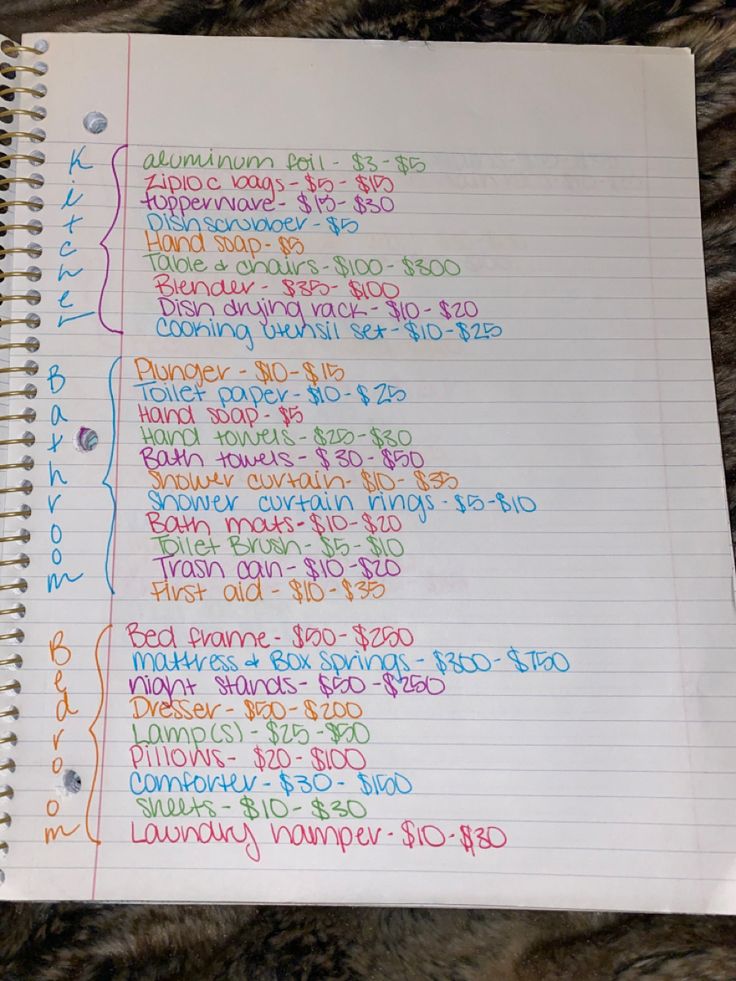 Kitchen
aluminum foil - $3 - $5
Ziploc bags - $5 - $15
tupperware - $15 - $30
Dish scrubber - $5
Hand soap - $5
Table & chairs - $100 - $300
Blender - $35 - $100
Dish drying rack - $10 - $20
Cooking utensil set - $10 - $25
Bathroom
Plunger - $10 - $15
Toilet paper - $10 - $25
Hand soap - $5
Hand towels - $20 - $30
Bath towels - $30 - $50
Shower curtain - $10 - $35
Shower curtain rings - $5 - $10
Bath mats - $10 - $20
Toilet Brush - $5 - $10
Trash can - $10 - $20
First aid - $10 - $35
Bedroom
Bed frame - $50 - $250
mattress & Box Springs - $300 - $750
night stands - $50 - $250
Dresser - $50 - $200
Lamp(s) - $25 - $50
Pillows - $20 - $100
Comforter - $30 - $150
Sheets - $10 - $30
Laundry hamper - $10 - $30